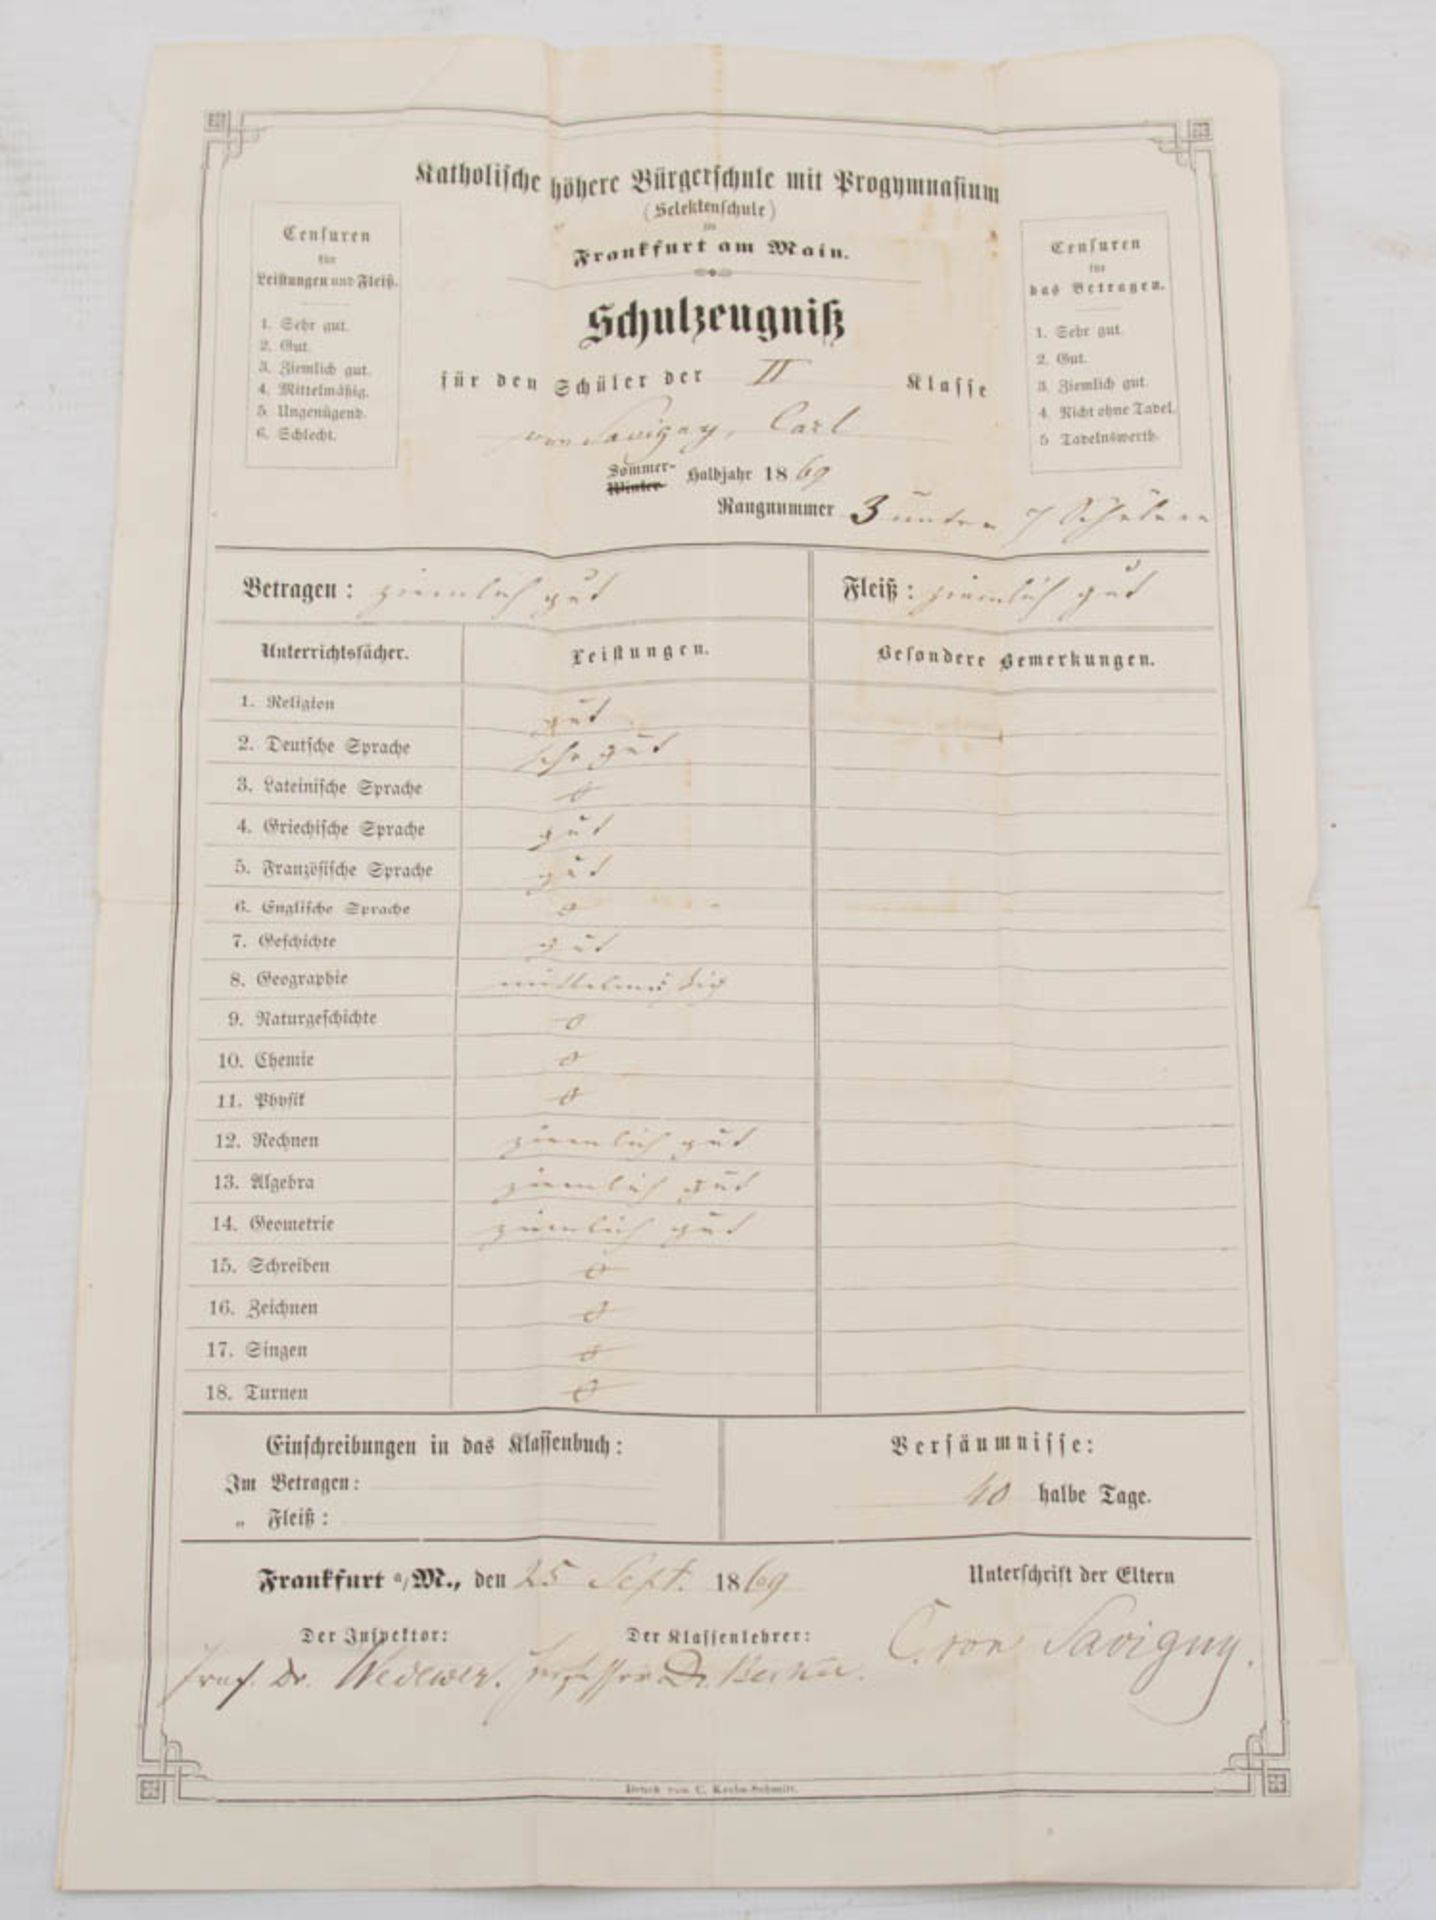 Katholische höhere Bürgerschule mit Progymnasium
(Selektenschule)
in
Frankfurt am Main.
Censuren
für
Leistungen und Fleiß.
1. Sehr gut.
2. Gut.
3. Ziemlich gut.
4. Mittelmäßig.
5. Ungenügend.
6. Schlecht.
Censuren
für
das Betragen.
1. Sehr gut.
2. Gut.
3. Ziemlich gut.
4. Nicht ohne Tadel.
5 Tadelnswerth.
Schulzeugniß
für den Schüler der II Klasse
von Savigny, Carl
Sommer-
Winter- Halbjahr 1869
Rangnummer 3 unter 7 Schülern
Betragen: ziemlich gut
Fleiß: ziemlich gut
Unterrichtsfächer. Leistungen. Besondere Bemerkungen.
1. Religion gut
2. Deutsche Sprache sehr gut
3. Lateinische Sprache 0
4. Griechische Sprache gut
5. Französische Sprache gut
6. Englische Sprache 0
7. Geschichte gut
8. Geographie mittelmäßig
9. Naturgeschichte 0
10. Chemie 0
11. Physik 0
12. Rechnen ziemlich gut
13. Algebra ziemlich gut
14. Geometrie ziemlich gut
15. Schreiben 0
16. Zeichnen 0
17. Singen 0
18. Turnen 0
Einschreibungen in das Klassenbuch:
Im Betragen:
„ Fleiß:
Versäumnisse:
40 halbe Tage.
Frankfurt a/M., den 25 Sept. 1869
Unterschrift der Eltern
Der Inspektor: Der Klassenlehrer:
Prof. Dr. Wedewer. Professor Dr. Becker. C. von Savigny.
Druck von C. Krebs-Schmitt.